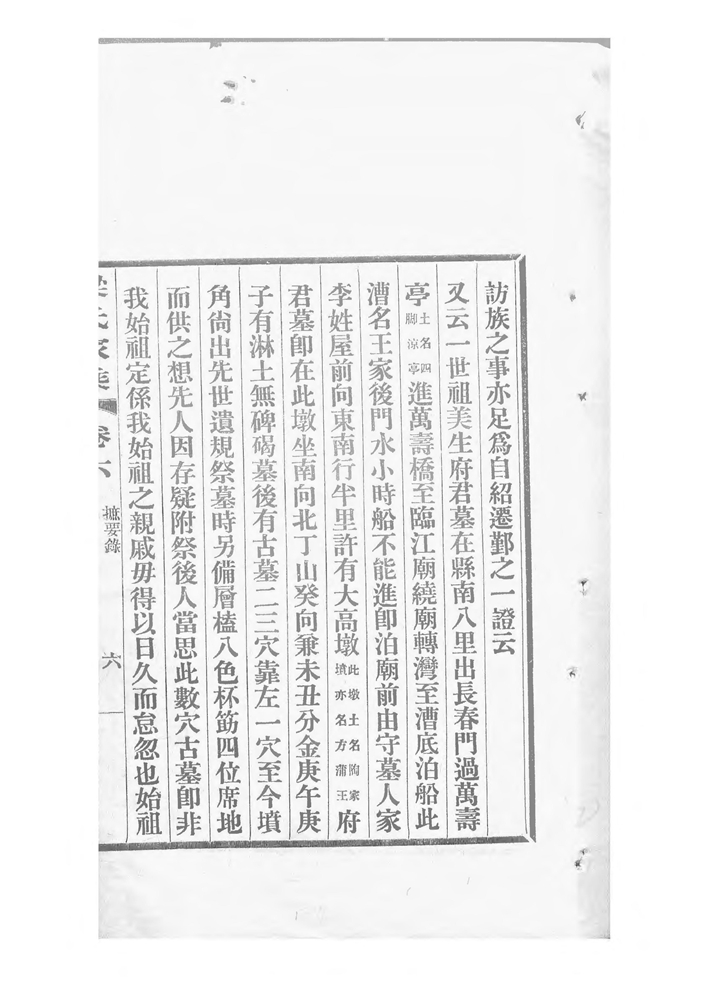 訪族之事亦足爲自紹遷鄞之一證云
又云一世祖美生府君墓在縣南八里出長春門過萬壽
亭土名四脚涼亭進萬壽橋至臨江廟繞廟轉灣至漕底泊船此
漕名王家後門水小時船不能進卽泊廟前由守墓人家
李姓屋前向東南行半里許有大高墩此墩土名陶家墳亦名方蒲王府
君墓卽在此墩坐南向北丁山癸向兼未丑分金庚午庚
子有淋土無碑碣墓後有古墓二三穴靠左一穴至今墳
角尙出先世遺規祭墓時另備層榼八色杯筯四位席地
而供之想先人因存疑附祭後人當思此數穴古墓卽非
我始祖定係我始祖之親戚毋得以日久而怠忽也始祖
氏家集 卷六 摭要錄 六